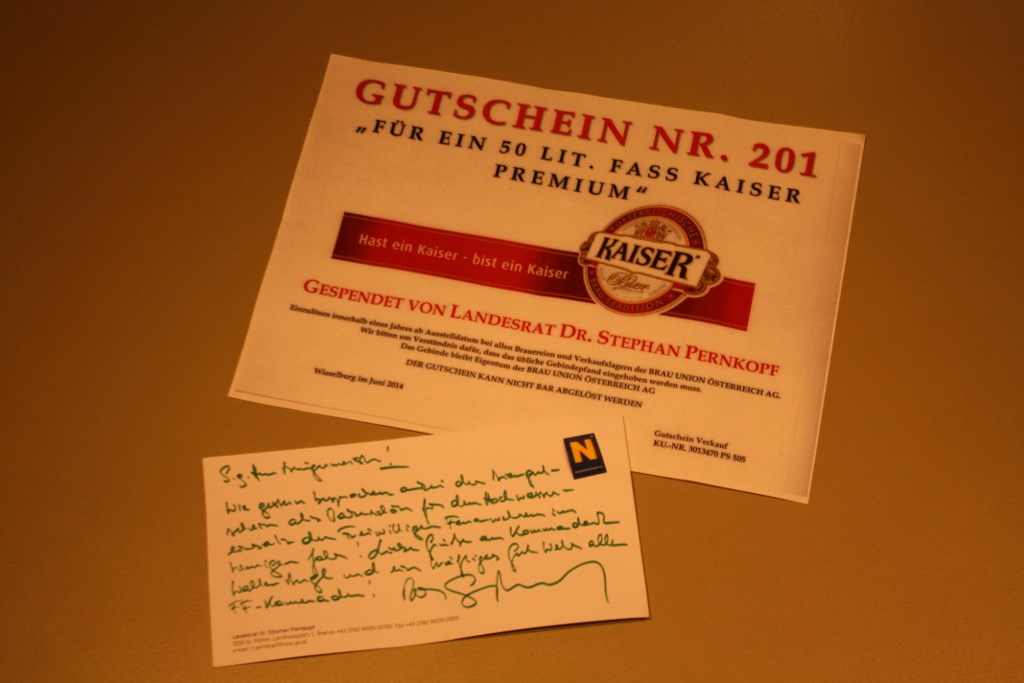 GUTSCHEIN NR. 201
„FÜR EIN 50 LIT. FASS KAISER
PREMIUM“
Hast ein Kaiser - bist ein Kaiser
ÖSTERREICHISCHE
KAISER
Bier
BRAUTRADITION
GESPENDET VON LANDESRAT DR. STEPHAN PERNKOPF
Einzulösen innerhalb eines Jahres ab Ausstelldatum bei allen Brauereien und Verkaufslagern der BRAU UNION ÖSTERREICH AG.
Wir bitten um Verständnis dafür, dass das übliche Gebindepfand eingehoben werden muss.
Das Gebinde bleibt Eigentum der BRAU UNION ÖSTERREICH AG
DER GUTSCHEIN KANN NICHT BAR ABGELÖST WERDEN
Wieselburg im Juni 2014
Gutschein Verkauf
KU.-NR. 3013470 PS 505
N
S.g. Herr Bürgermeister!
Wie gestern besprochen anbei der
schein als Dankeschön für den Hochwasser-
einsatz der Freiwilligen Feuerwehren im
heurigen Jahr! Liebe Grüße an Kommandant
und ein kräftiges Gut Wehr allen
FF-Kameraden!
Landesrat Dr. Stephan Pernkopf
3109 St. Pölten, Landhausplatz 1, Telefon +43 2742 9005